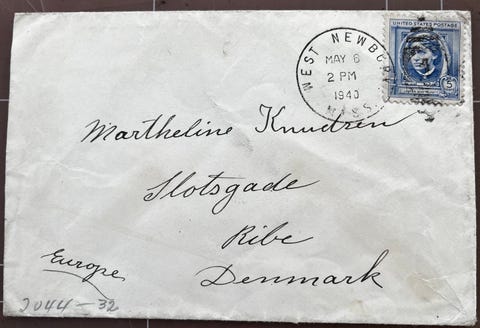 UNITED STATES POSTAGE
5¢
WEST NEWBURY
MAY 6
2 PM
1940
MASS.
Martheline Knudsen
Slotsgade
Ribe
Denmark
Europe
2044-32